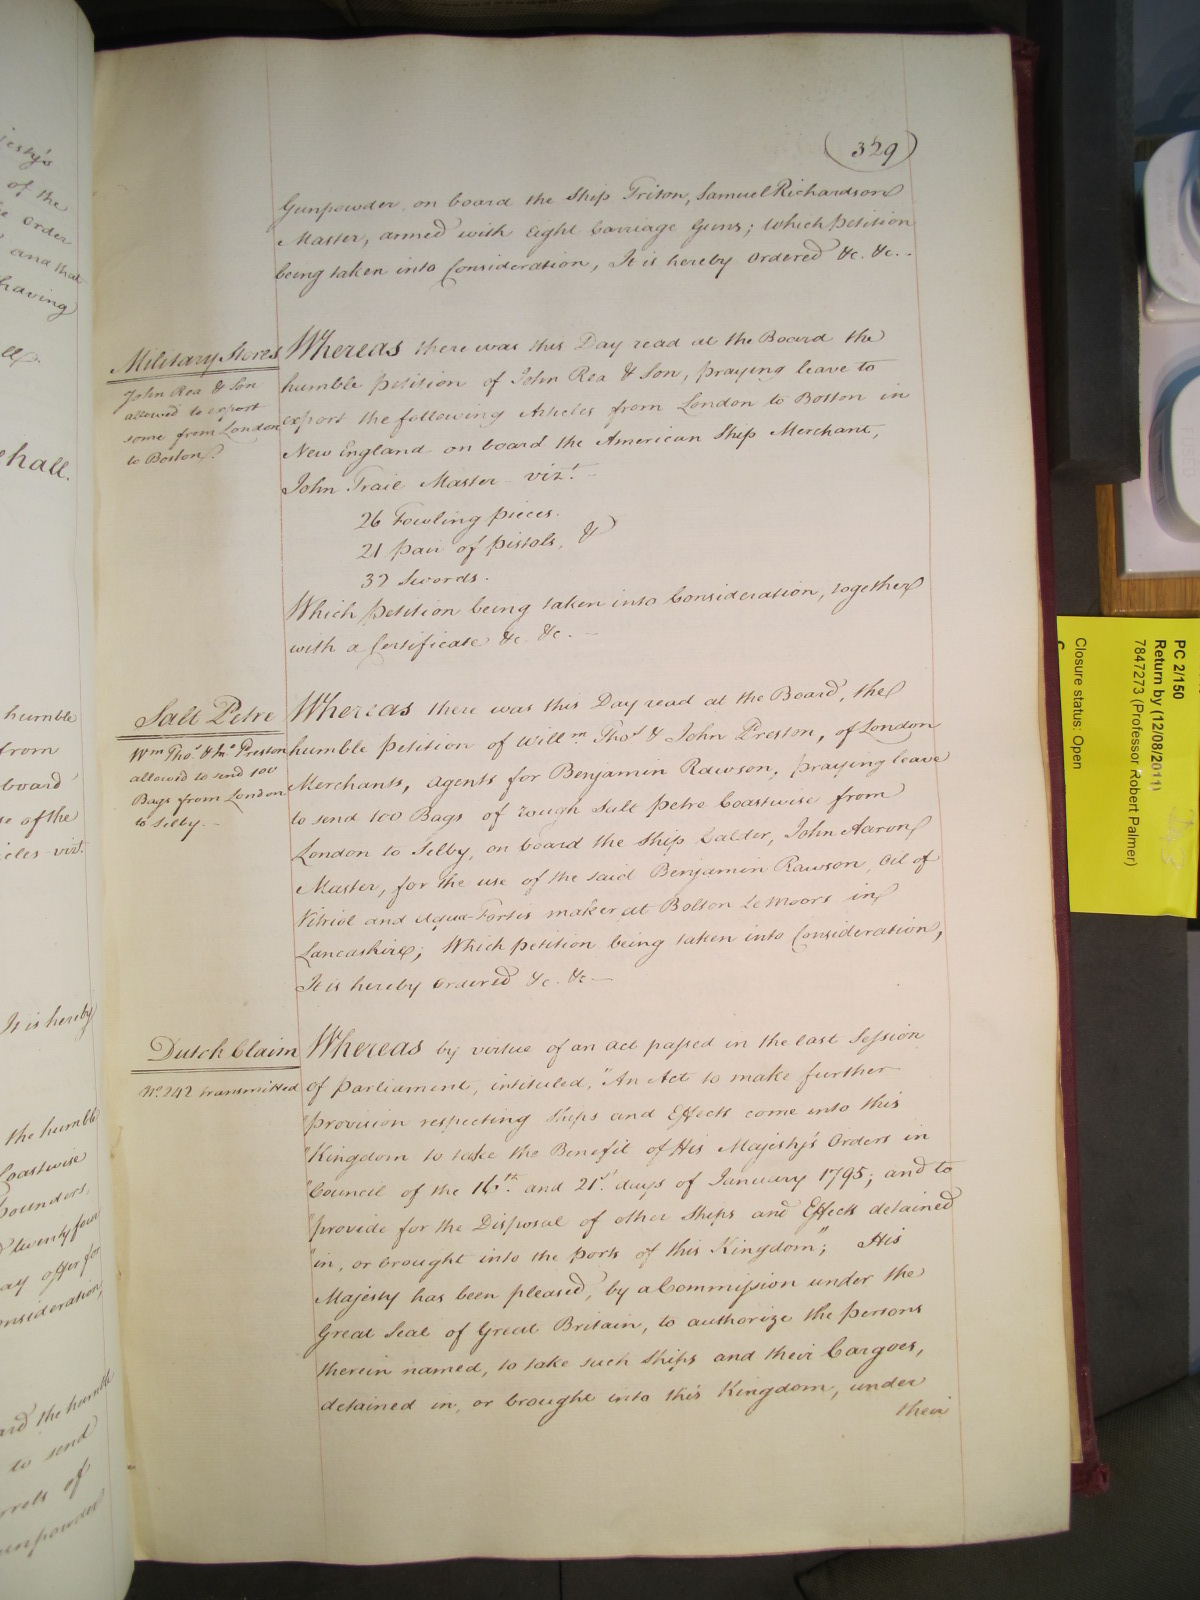 (329)
Gunpowder on board the Ship Triton, Samuel Richardson
Master, armed with Eight Carriage Guns; Which Petition
being taken into Consideration, It is hereby Ordered &c. &c. -
Military Stores
John Rea & Son
allowed to export
some from London
to Boston.
Whereas there was this Day read at the Board the
humble Petition of John Rea & Son, praying leave to
export the following Articles from London to Boston in
New England on board the American Ship Merchant,
John Trail Master - vizt. -
26 Fowling pieces.
21 pair of Pistols, &
32 Swords.
Which Petition being taken into Consideration, together
with a Certificate &c. &c. -
Salt Petre
Wm. Thos. & Jno. Preston
allowed to send 100
Bags from London
to Selby. -
Whereas there was this Day read at the Board, the
humble Petition of Willm. Thos. & John Preston, of London
Merchants, Agents for Benjamin Rawson, praying leave
to send 100 Bags of rough Salt Petre Coastwise from
London to Selby, on board the Ship Calder, John Aaron
Master, for the use of the said Benjamin Rawson, Oil of
Vitriol and Aqua-Fortis maker at Bolton Le Moors in
Lancashire; Which Petition being taken into Consideration,
It is hereby Ordered &c. &c. -
Dutch Claim
No. 242 transmitted
Whereas by virtue of an act passed in the last Session
of Parliament, intituled, "An Act to make further
"provision respecting Ships and Effects come into this
"Kingdom to take the Benefit of His Majesty's Orders in
"Council of the 16th. and 21st. days of January 1795; and to
"provide for the Disposal of other Ships and Effects detained
"in, or brought into the ports of this Kingdom"; His
Majesty has been pleased, by a Commission under the
Great Seal of Great Britain, to authorize the Persons
therein named, to take such Ships and their Cargoes,
detained in, or brought into this Kingdom, under
their
jesty's
of the
order
and that
having
hall.
humble
from
board
of the
cles vizt.
It is hereby
the humble
Coastwise
Pounders,
twenty four
ay offer for
onsideration,
ard the humble
to send
rrels of
unpowder
PC 2/150
Return by (12/08/2011)
7847273 (Professor Robert Palmer)
Closure status: Open